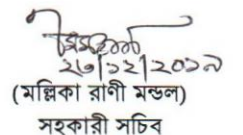 ২৬/১২/২০১৯
(মল্লিকা রাণী মন্ডল)
সহকারী সচিব